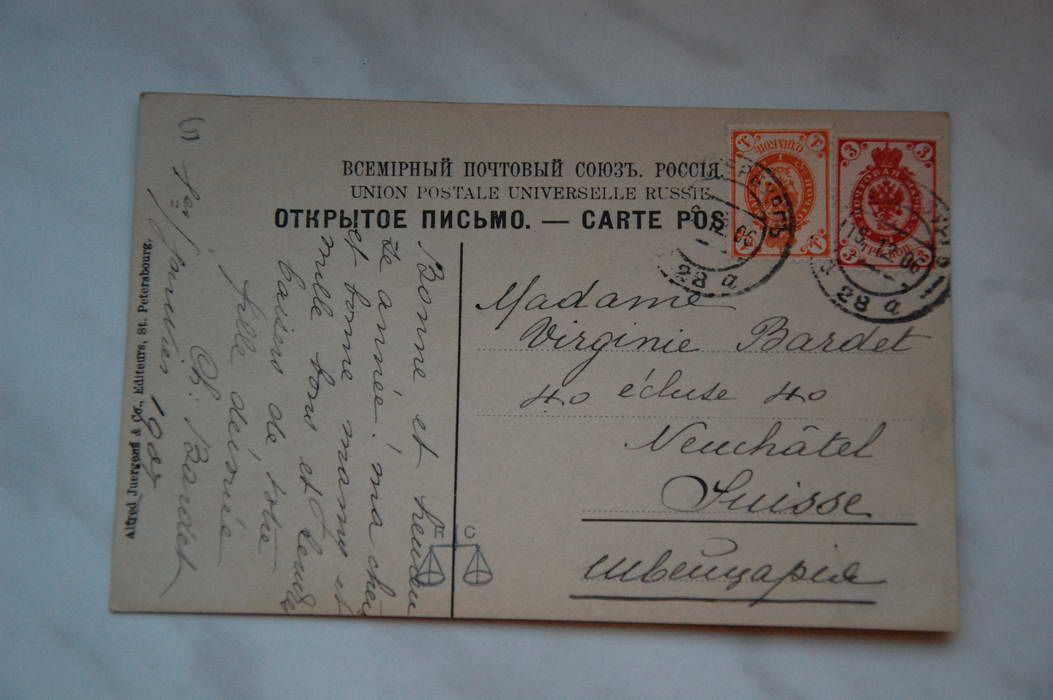 ВСЕМІРНЫЙ ПОЧТОВЫЙ СОЮЗЪ. РОССІЯ.
UNION POSTALE UNIVERSELLE RUSSIE.
ОТКРЫТОЕ ПИСЬМО. — CARTE POS
Madame
Virginie Bardet
40 écluse 40
Neuchâtel
Suisse
швейцарія
Bonne et heureu
se année! ma chère
et bonne mamy et
mille bons et tendres
baisers de votre
fille dévouée
Bardet
1er janvier 1907
Alfred Juergens & Co., Editeurs, St. Petersbourg.
1
1
1
1
3
ПОЧТОВАЯ МАРКА
3
3
3
12 06
28 а
19.12.06
28 а